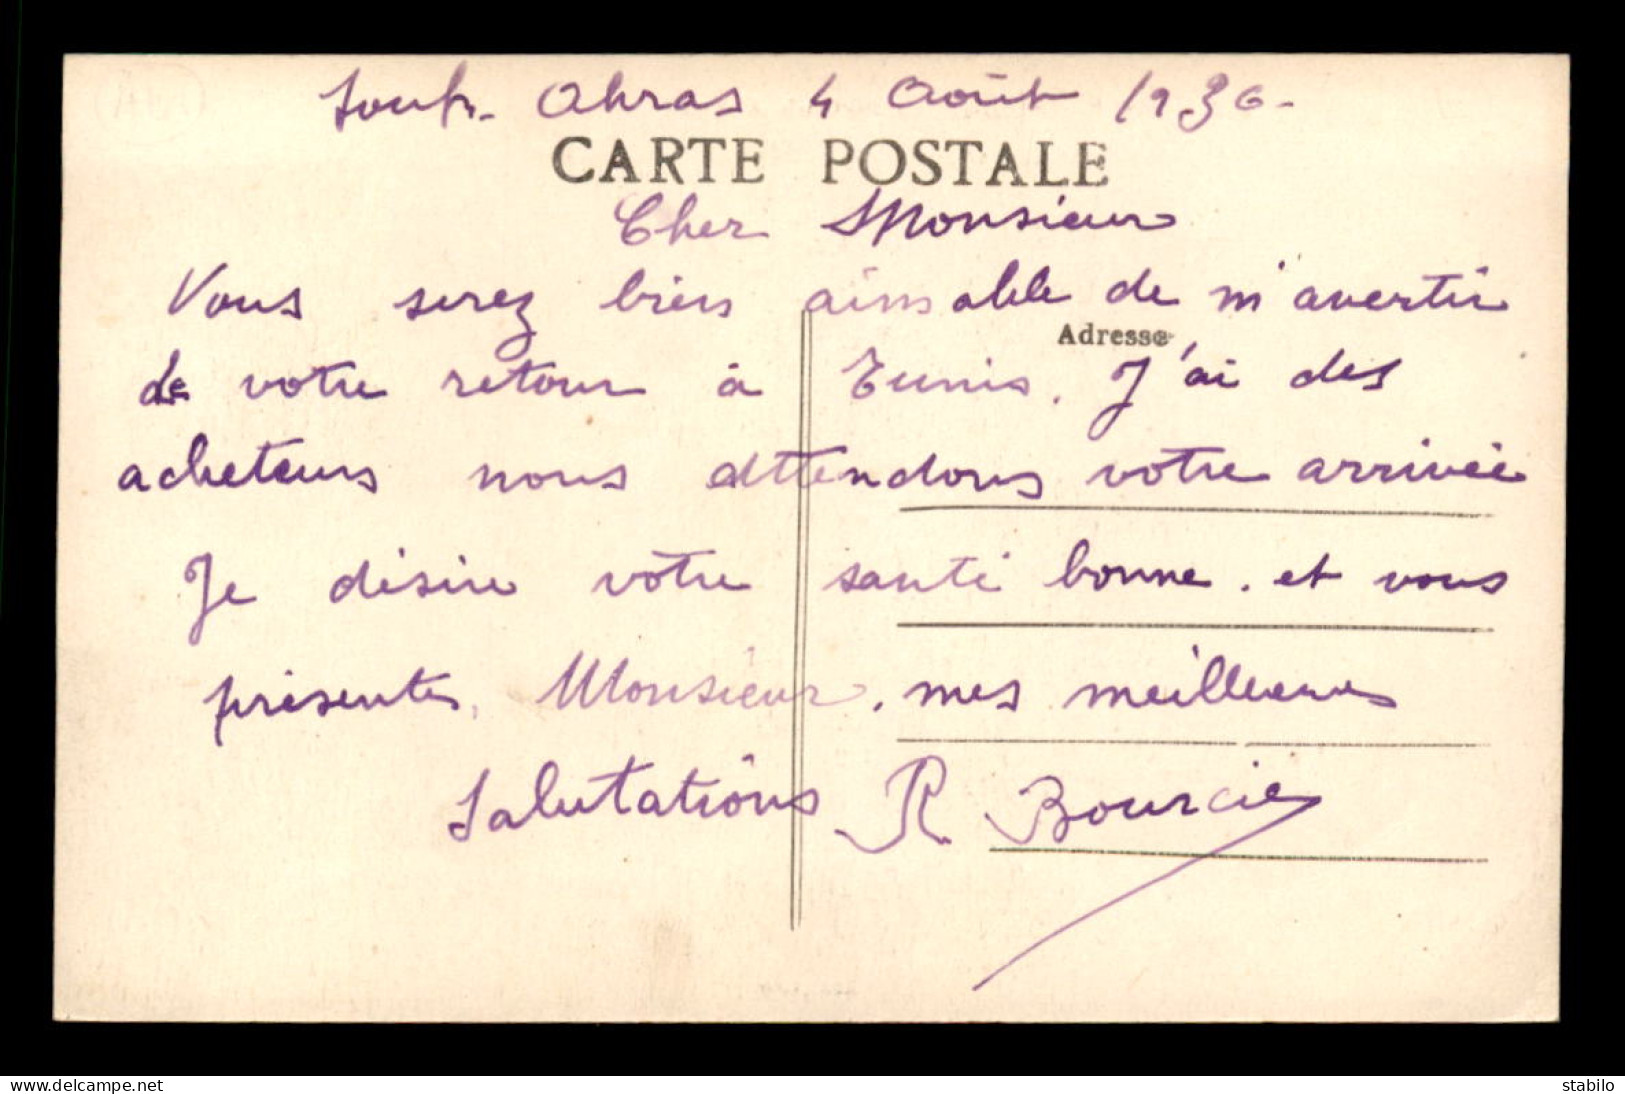 Souk-Ahras 4 Août 1930-
CARTE POSTALE
Cher Monsieur
Vous serez bien aimable de m'avertir
Adresse
de votre retour à Tunis. J'ai des
acheteurs nous attendons votre arrivée
Je désire votre santé bonne. et vous
présente, Monsieur, mes meilleures
Salutations R Bourcier
www.delcampe.net
stabilo